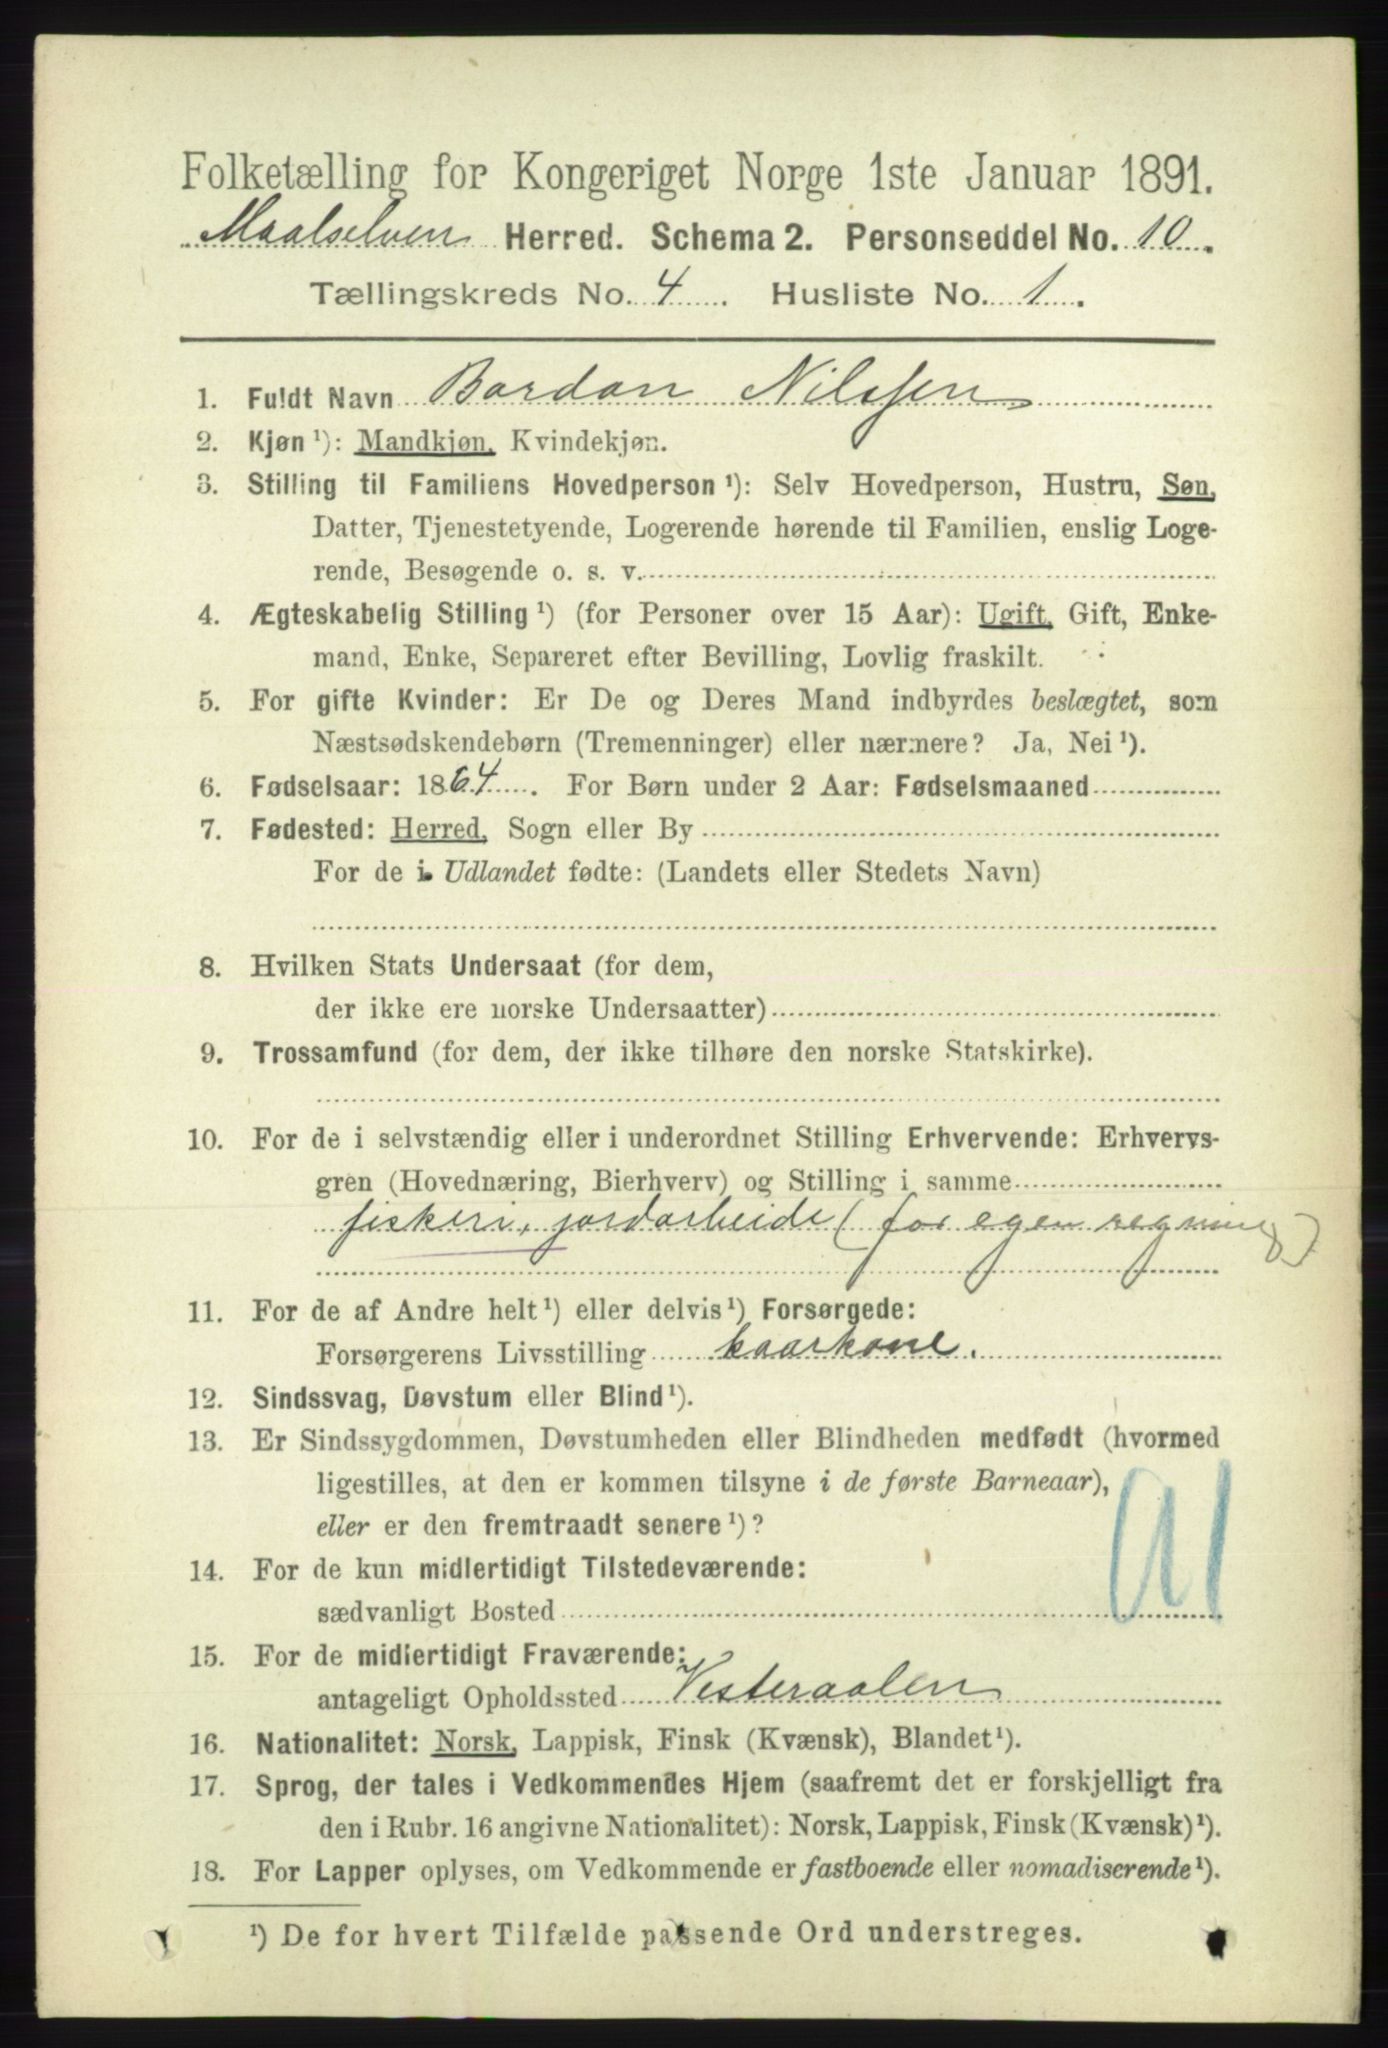 Folketælling for Kongeriget Norge 1ste Januar 1891.
Maalselven Herred. Schema 2. Personseddel No. 10.
Tællingskreds No. 4. Husliste No. 1.
1. Fuldt Navn Bardon Nilssen
2. Kjøn ¹): Mandkjøn, Kvindekjøn.
3. Stilling til Familiens Hovedperson ¹): Selv Hovedperson, Hustru, Søn,
Datter, Tjenestetyende, Logerende hørende til Familien, enslig Loge-
rende, Besøgende o. s. v.
4. Ægteskabelig Stilling ¹) (for Personer over 15 Aar): Ugift, Gift, Enke-
mand, Enke, Separeret efter Bevilling, Lovlig fraskilt.
5. For gifte Kvinder: Er De og Deres Mand indbyrdes beslægtet, som
Næstsødskendebørn (Tremenninger) eller nærmere? Ja, Nei ¹).
6. Fødselsaar: 1864. For Børn under 2 Aar: Fødselsmaaned
7. Fødested: Herred, Sogn eller By
For de i Udlandet fødte: (Landets eller Stedets Navn)
8. Hvilken Stats Undersaat (for dem,
der ikke ere norske Undersaatter)
9. Trossamfund (for dem, der ikke tilhøre den norske Statskirke).
10. For de i selvstændig eller i underordnet Stilling Erhvervende: Erhvervs-
gren (Hovednæring, Bierhverv) og Stilling i samme
fiskeri, jordarbeide (for egen regning)
11. For de af Andre helt ¹) eller delvis ¹) Forsørgede:
Forsørgerens Livsstilling kaarkone.
12. Sindssvag, Døvstum eller Blind ¹).
13. Er Sindssygdommen, Døvstumheden eller Blindheden medfødt (hvormed
ligestilles, at den er kommen tilsyne i de første Barneaar),
eller er den fremtraadt senere ¹)?
14. For de kun midlertidigt Tilstedeværende:
sædvanligt Bosted
15. For de midlertidigt Fraværende:
antageligt Opholdssted Vesteraalen
16. Nationalitet: Norsk, Lappisk, Finsk (Kvænsk), Blandet ¹).
17. Sprog, der tales i Vedkommendes Hjem (saafremt det er forskjelligt fra
den i Rubr. 16 angivne Nationalitet): Norsk, Lappisk, Finsk (Kvænsk) ¹).
18. For Lapper oplyses, om Vedkommende er fastboende eller nomadiserende ¹).
¹) De for hvert Tilfælde passende Ord understreges.